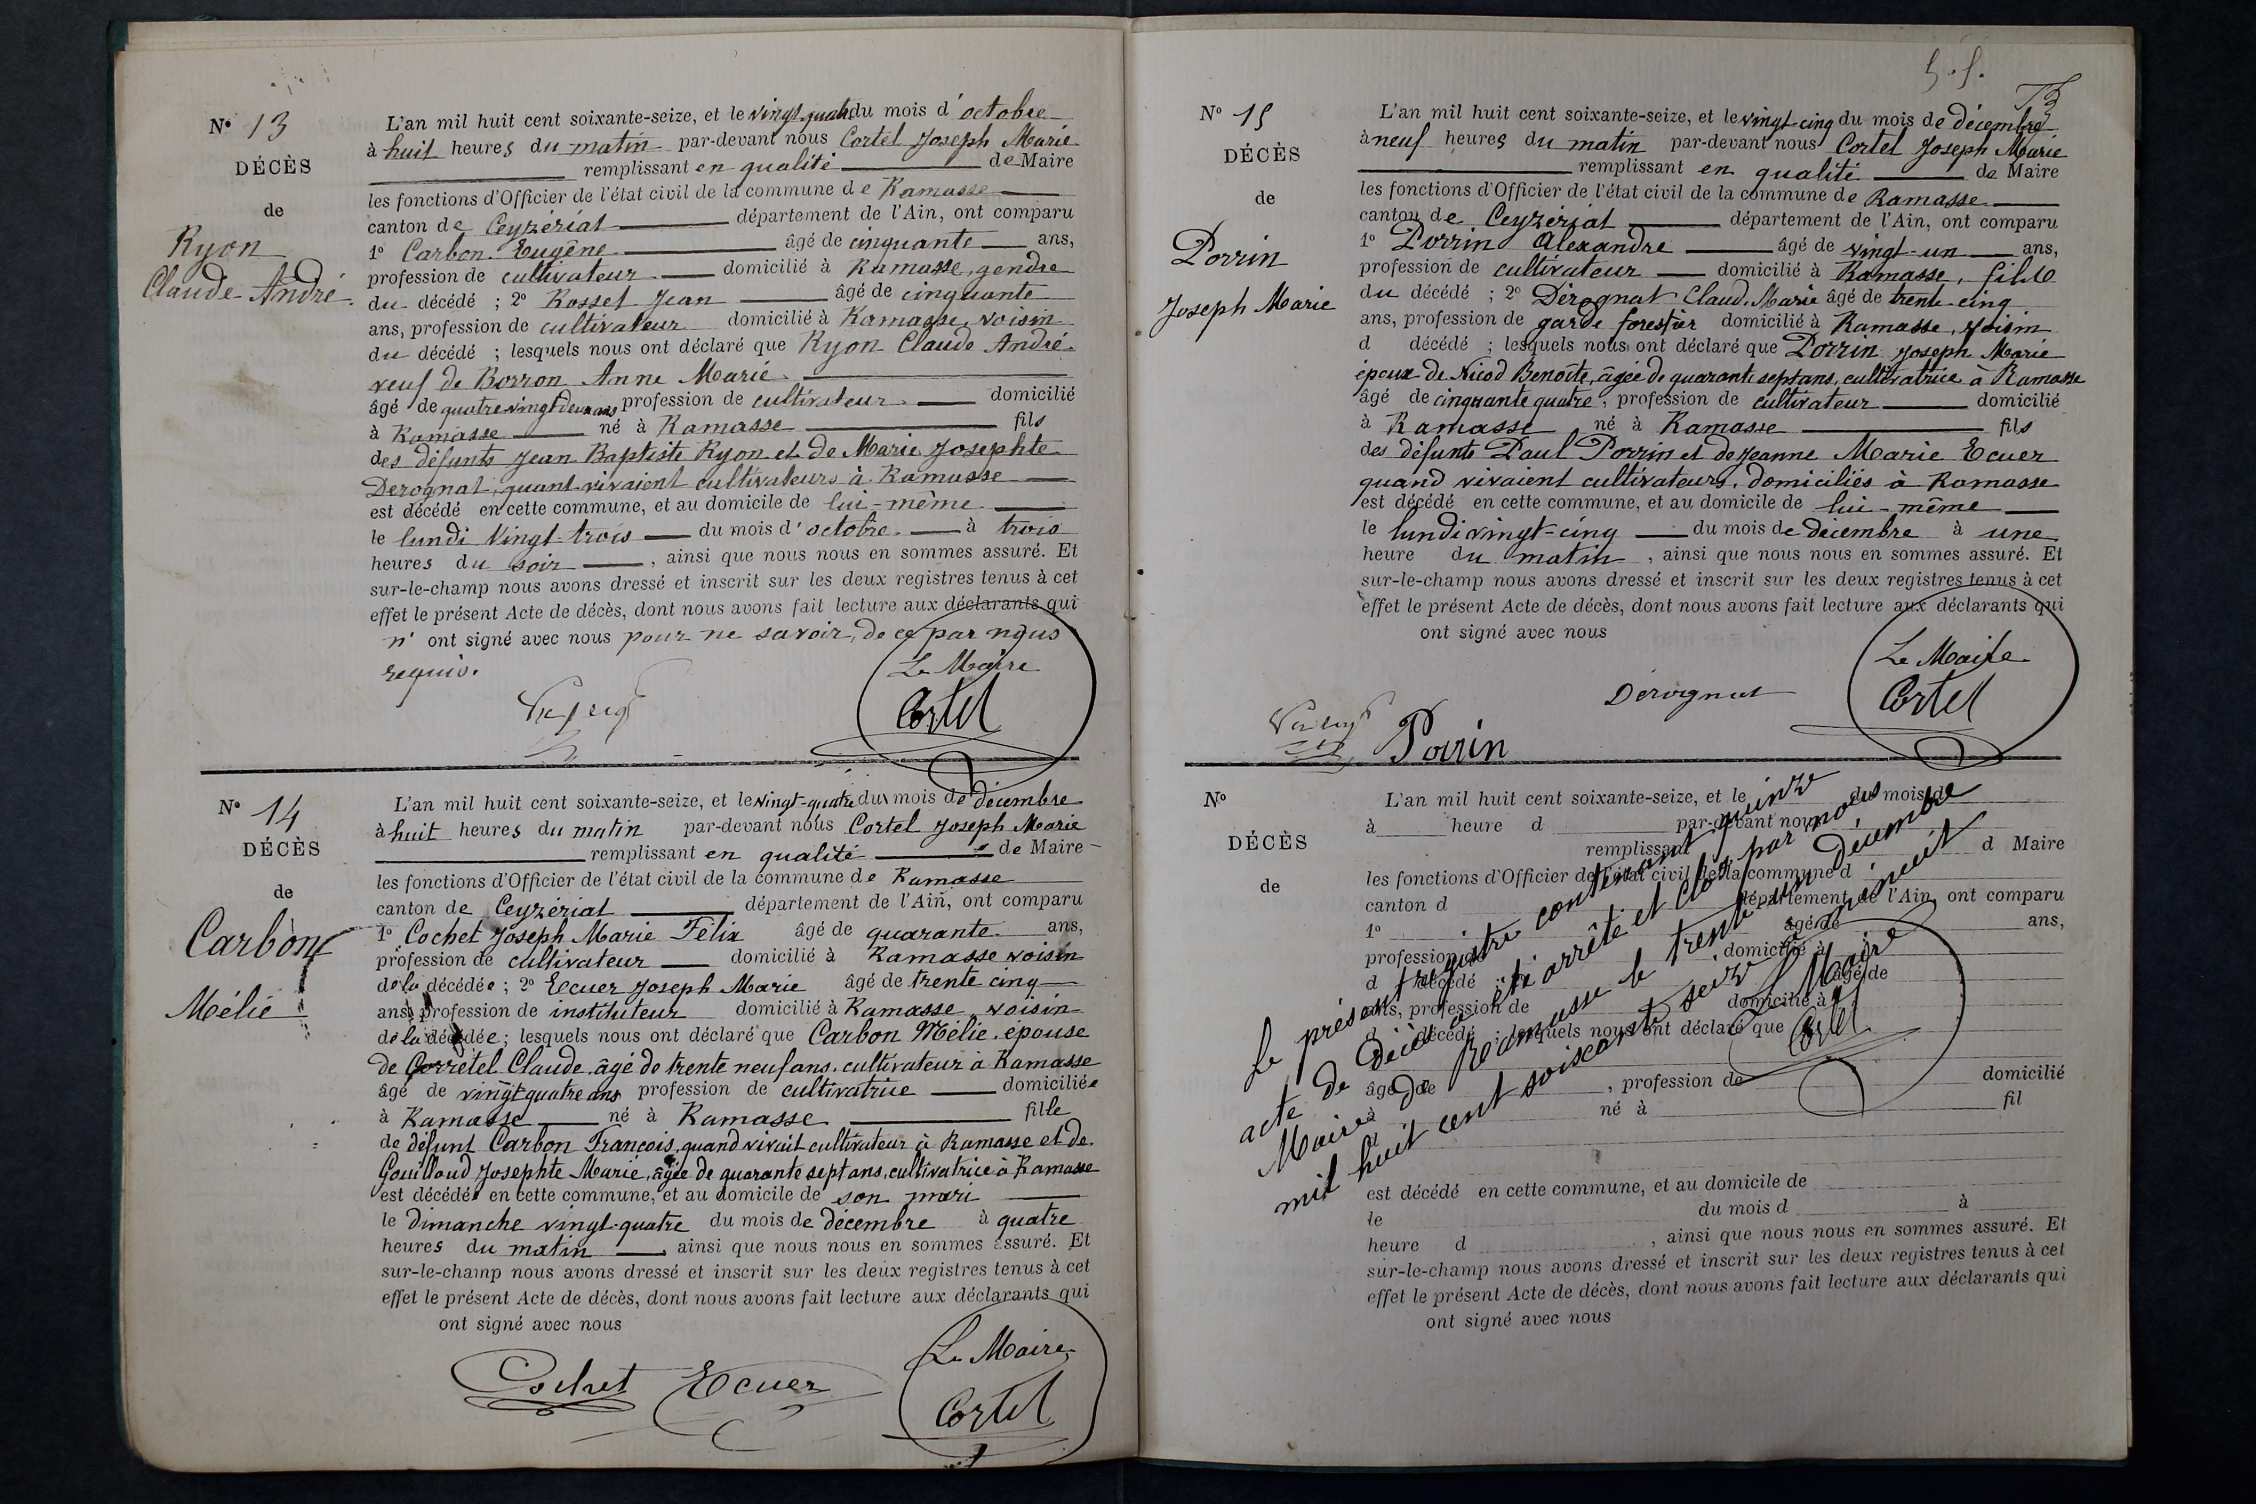 N° 13
DÉCÈS
de
Ryon
Claude André.
L'an mil huit cent soixante-seize, et le vingt-quatre du mois d'octobre
à huit heures du matin par-devant nous Cortel Joseph Marie
remplissant en qualité de Maire
les fonctions d'Officier de l'état civil de la commune de Ramasse
canton de Ceyzériat département de l'Ain, ont comparu
1° Carbon Eugêne âgé de cinquante ans,
profession de cultivateur domicilié à Ramasse, gendre
du décédé ; 2° Rosset Jean âgé de cinquante
ans, profession de cultivateur domicilié à Ramasse, voisin
du décédé ; lesquels nous ont déclaré que Ryon Claude André
veuf de Borron Anne Marie
âgé de quatre vingt deux ans profession de cultivateur domicilié
à Ramasse né à Ramasse fils
des défunts Jean Baptiste Ryon et de Marie Josephte
Derognat, quant vivaient cultivateurs à Ramasse
est décédé en cette commune, et au domicile de lui-même
le lundi vingt-trois du mois d'octobre à trois
heures du soir, ainsi que nous nous en sommes assuré. Et
sur-le-champ nous avons dressé et inscrit sur les deux registres tenus à cet
effet le présent Acte de décès, dont nous avons fait lecture aux déclarants qui
n'ont signé avec nous pour ne savoir, de ce par nous
requis.
Le Maire
Cortel
N° 14
DÉCÈS
de
Carbon
Mélie
L'an mil huit cent soixante-seize, et le vingt-quatre du mois de décembre
à huit heures du matin par-devant nous Cortel Joseph Marie
remplissant en qualité de Maire
les fonctions d'Officier de l'état civil de la commune de Ramasse
canton de Ceyzériat département de l'Ain, ont comparu
1° Cochet Joseph Marie Félix âgé de quarante ans,
profession de cultivateur domicilié à Ramasse voisin
de la décédée ; 2° Ecuer Joseph Marie âgé de trente cinq
ans, profession de instituteur domicilié à Ramasse, voisin
de la décédée ; lesquels nous ont déclaré que Carbon Mélie, épouse
de Corretel Claude, âgé de trente neuf ans, cultivateur à Ramasse
âgé de vingt quatre ans profession de cultivatrice domiciliée
à Ramasse né à Ramasse fille
de défunt Carbon François, quand vivait cultivateur à Ramasse et de
Gouilloud Josephte Marie, âgée de quarante sept ans, cultivatrice à Ramasse
est décédée en cette commune, et au domicile de son mari
le dimanche vingt-quatre du mois de décembre à quatre
heures du matin, ainsi que nous nous en sommes assuré. Et
sur-le-champ nous avons dressé et inscrit sur les deux registres tenus à cet
effet le présent Acte de décès, dont nous avons fait lecture aux déclarants qui
ont signé avec nous
Cochet Ecuer
Le Maire
Cortel
N° 15
DÉCÈS
de
Porrin
Joseph Marie
L'an mil huit cent soixante-seize, et le vingt-cinq du mois de décembre
à neuf heures du matin par-devant nous Cortel Joseph Marie
remplissant en qualité de Maire
les fonctions d'Officier de l'état civil de la commune de Ramasse
canton de Ceyzériat département de l'Ain, ont comparu
1° Porrin Alexandre âgé de vingt-un ans,
profession de cultivateur domicilié à Ramasse, fils
du décédé ; 2° Dérognat Claud. Marie âgé de trente-cinq
ans, profession de garde forestier domicilié à Ramasse, voisin
d décédé ; lesquels nous ont déclaré que Porrin Joseph Marie
époux de Nicod Benoîte, âgée de quarante sept ans, cultivatrice à Ramasse
âgé de cinquante quatre, profession de cultivateur domicilié
à Ramasse né à Ramasse fils
des défunts Paul Porrin et de Jeanne Marie Ecuer
quand vivaient cultivateurs, domiciliés à Ramasse
est décédé en cette commune, et au domicile de lui-même
le lundi vingt-cinq du mois de décembre à une
heure du matin, ainsi que nous nous en sommes assuré. Et
sur-le-champ nous avons dressé et inscrit sur les deux registres tenus à cet
effet le présent Acte de décès, dont nous avons fait lecture aux déclarants qui
ont signé avec nous
Le Maire
Dérognat
Cortel
Porrin
N°
DÉCÈS
de
L'an mil huit cent soixante-seize, et le du mois d
à heure d par-devant nous
remplissant d Maire
les fonctions d'Officier de l'état civil de la commune d
canton d département de l'Ain, ont comparu
1° âgé de ans,
profession de domicilié à
d décédé ; 2° âgé de
ans, profession de domicilié à
d décédé ; lesquels nous ont déclaré que
âgé de , profession de domicilié
à né à fil
d
est décédé en cette commune, et au domicile de
le du mois d à
heure d , ainsi que nous nous en sommes assuré. Et
sur-le-champ nous avons dressé et inscrit sur les deux registres tenus à cet
effet le présent Acte de décès, dont nous avons fait lecture aux déclarants qui
ont signé avec nous
Le présent registre contenant quinze
acte de décès a été arrêté et clos par nous
Maire de Ramasse le trente un décembre
mil huit cent soixante seize à minuit
Le Maire
Cortel